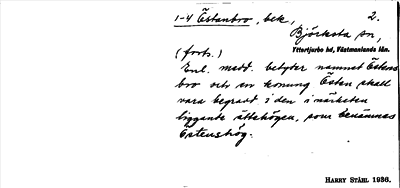 1-4 Östanbro, bek, 2.
Björksta sn,
(forts.) Yttertjurbo hd, Västmanlands län.
Enl. medd. betyder namnet Östens
bro och en konung Östen skall
vara begravd i den i närheten
liggande ättehögen, som benämnes
Östenshög.
HARRY STÅHL 1936.